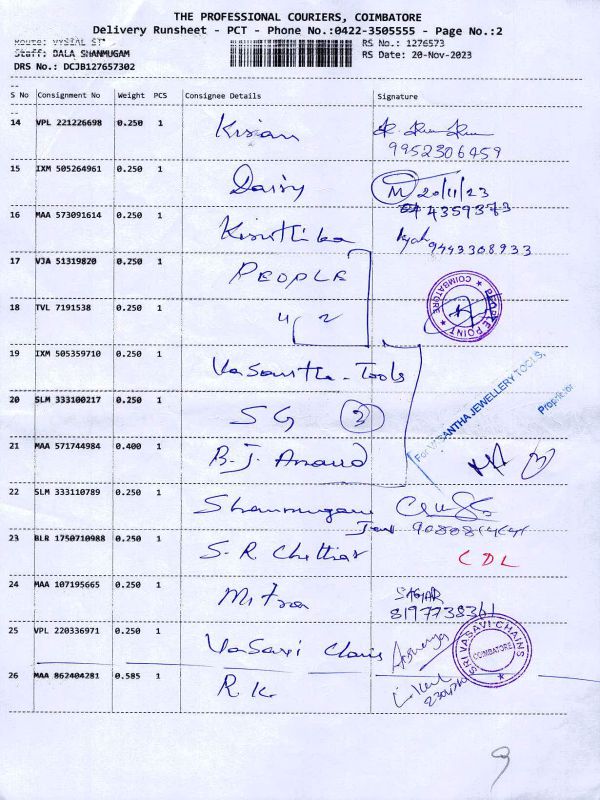 THE PROFESSIONAL COURIERS, COIMBATORE
Delivery Runsheet - PCT - Phone No.:0422-3505555 - Page No.:2
Route: VYSIAL ST
RS No.: 1276573
Staff: DALA SHANMUGAM
RS Date: 20-Nov-2023
DRS No.: DCJB127657302
S No Consignment No Weight PCS Consignee Details Signature
14 VPL 221226698 0.250 1 Kisian
9952306459
15 IXM 505264961 0.250 1 Daisy 20/11/23
4359373
16 MAA 573091614 0.250 1 Kisuthika 9443308933
17 VJA 51319820 0.250 1 PEOPLE
PEOPLE POINT COIMBATORE
18 TVL 7191538 0.250 1 4 2
19 IXM 505359710 0.250 1 Vasantha - Tools
For VASANTHA JEWELLERY TOOLS,
Proprietor
20 SLM 333100217 0.250 1 SG 3
21 MAA 571744984 0.400 1 B.J. Anand
22 SLM 333110789 0.250 1 Shanmugam
23 BLR 1750710988 0.250 1 S-R Chettiar CDL
24 MAA 107195665 0.250 1 Mitra SAGAR
8197738361
25 VPL 220336971 0.250 1 Vasavi Chains
SRI VASAVI CHAINS COIMBATORE
26 MAA 862404281 0.585 1 R K.
9